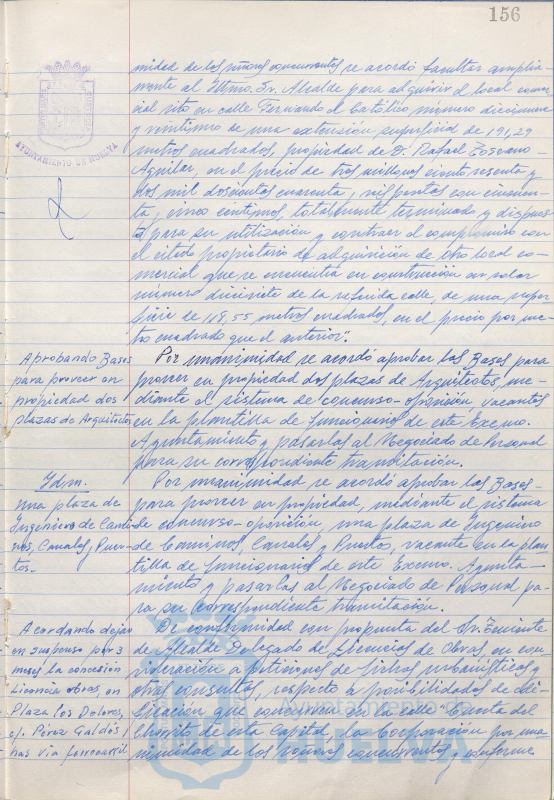 156
AYUNTAMIENTO DE HUELVA
midad de los señores concurrentes se acordó facultar amplia-
mente al Iltmo. Sr. Alcalde para adquirir el local comer-
cial sito en calle Fernando el Católico número diecinueve
y veintiuno de una extensión superficial de 191,29
metros cuadrados, propiedad de D. Rafael Toscano
Aguilar, en el precio de tres millones ciento sesenta y
dos mil doscientos cuarenta y seis pesetas con cincuen-
ta y cinco céntimos, totalmente terminado y dispues-
to para su utilización y contraer el compromiso con
el citado propietario de adquisición de otro local co-
mercial que se encuentra en construcción en solar
número diecisiete de la referida calle, de una super-
ficie de 119,55 metros cuadrados, en el precio por me-
tro cuadrado que el anterior".
Aprobando Bases
para proveer en
propiedad dos
plazas de Arquitecto
Por unanimidad se acordó aprobar las Bases para
proveer en propiedad dos plazas de Arquitectos, me-
diante el sistema de concurso-oposición, vacantes
en la plantilla de funcionarios de este Excmo.
Ayuntamiento y pasarlas al Negociado de Personal
para su correspondiente tramitación.
Idm.
una plaza de
Ingeniero de Cami-
nos, Canales y Puer-
tos.
Por unanimidad se acordó aprobar las Bases
para proveer en propiedad, mediante el sistema
de concurso-oposición, una plaza de Ingeniero
de Caminos, Canales y Puertos, vacante en la plan-
tilla de funcionarios de este Excmo. Ayunta-
miento y pasarlas al Negociado de Personal pa-
ra su correspondiente tramitación.
Acordando dejar
en suspenso por 3
meses la concesión
Licencia obras, en
Plaza los Dolores,
c/. Pérez Galdós,
has vía ferrocarril
De conformidad con propuesta del Sr. Teniente
de Alcalde Delegado de Licencias de Obras, en con-
sideración a peticiones de fichas urbanísticas y
otras consultas, respecto a posibilidades de edi-
ficación que concurren en la calle Cuesta del
de esta Capital, la Corporación por una-
nimidad de los señores concurrentes y conforme
Ayuntamiento de
HUELVA